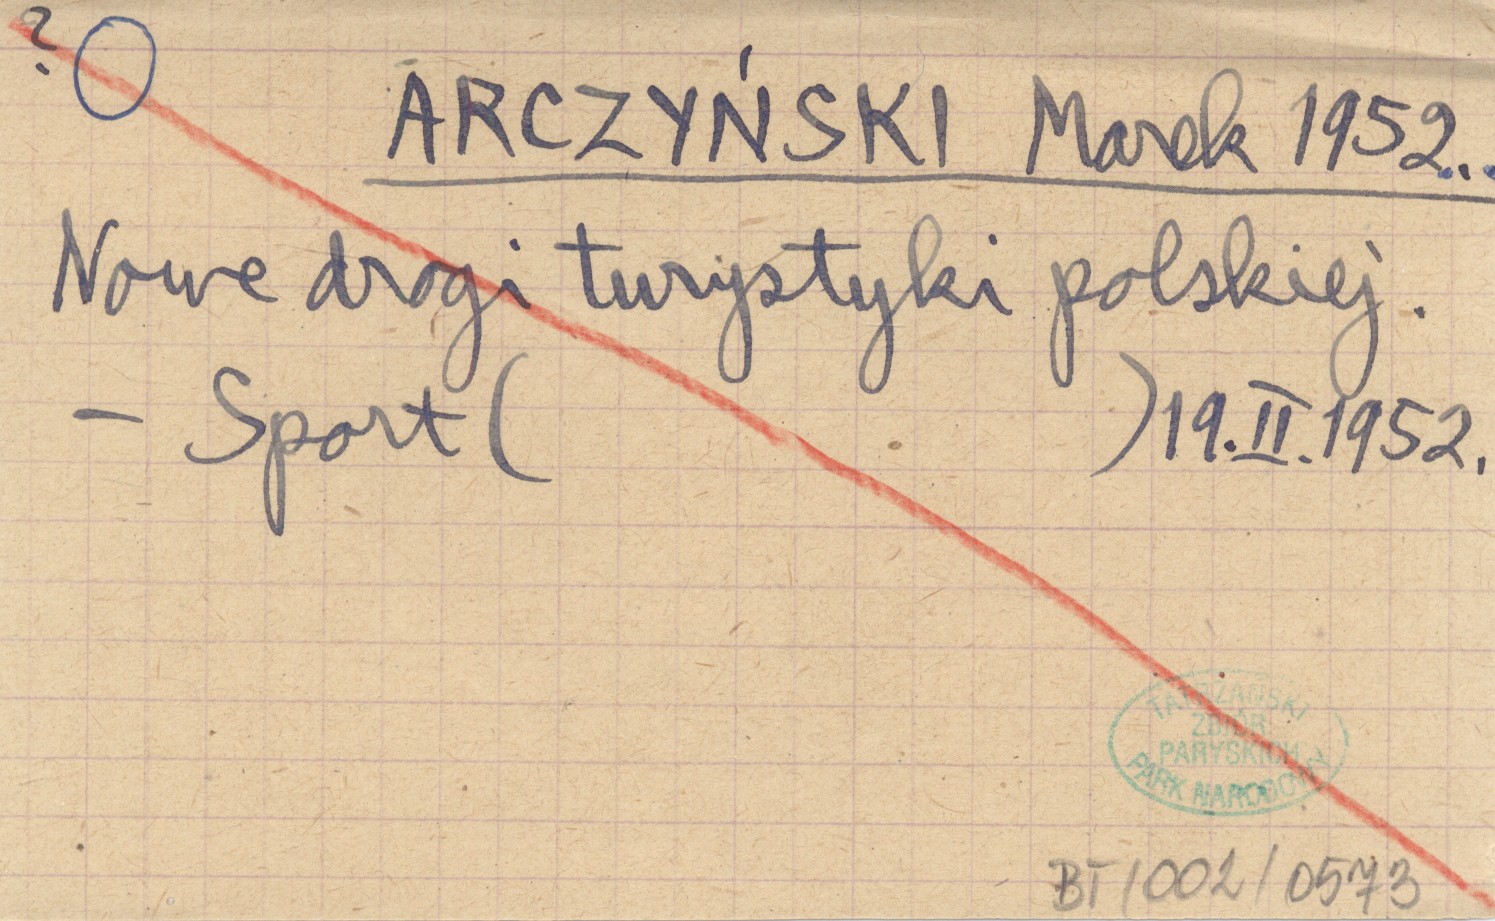 ?
ARCZYŃSKI Marek 1952...
Nowe drogi turystyki polskiej.
- Sport ( ) 19.II.1952.
TATRZAŃSKI
ZBIÓR
PARYSKICH
PARK NARODOWY
BT/002/0573